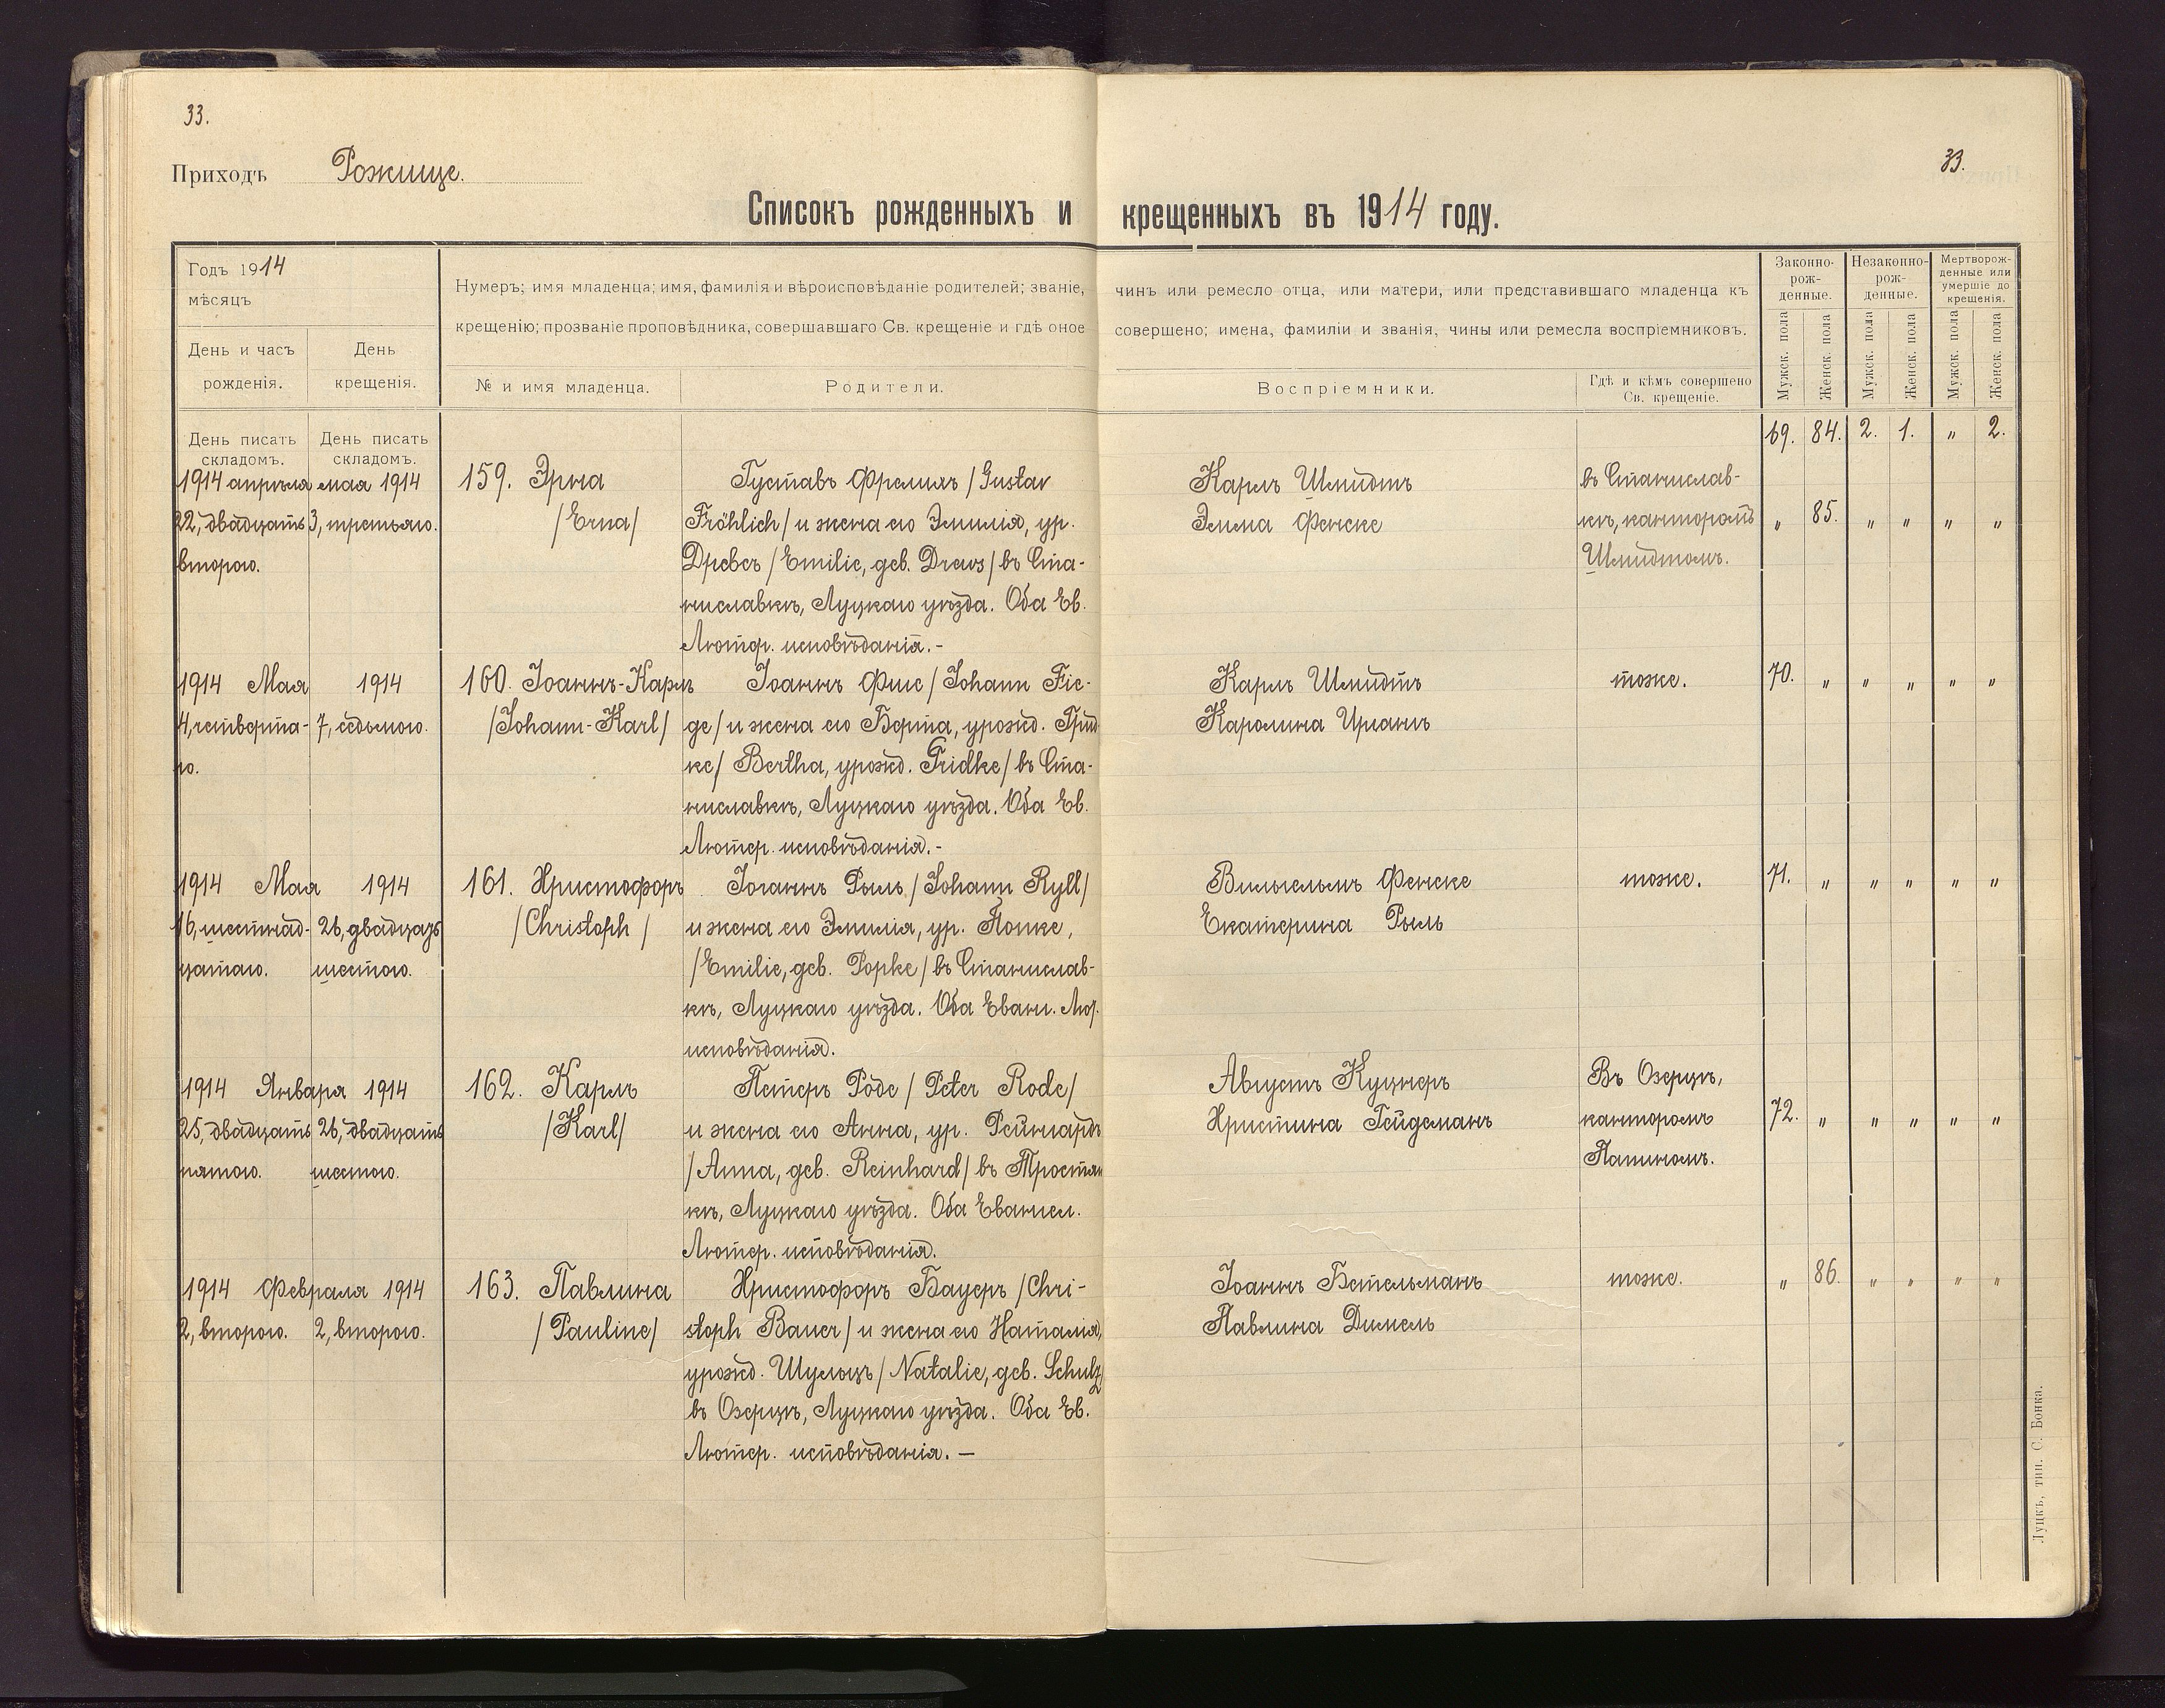 33.
33.
Приходъ Рожище.
Списокъ рожденныхъ и крещенныхъ въ 1914 году.
Годъ 1914
мѣсяцъ
День и часъ
рожденія.
День
крещенія.
Нумеръ; имя младенца; имя, фамилія и вѣроисповѣданіе родителей; званіе, чинъ или ремесло отца, или матери, или представившаго младенца къ
крещенію; прозваніе проповѣдника, совершавшаго Св. крещеніе и гдѣ оное совершено; имена, фамиліи и званія, чины или ремесла воспріемниковъ.
№ и имя младенца.
Родители.
Воспріемники.
Гдѣ и кѣмъ совершено
Св. крещеніе.
Законно-
рож-
денные.
Незаконно-
рож-
денные.
Мертворож-
денные или
умершіе до
крещенія.
Мужск. пола
Женск. пола
Мужск. пола
Женск. пола
Мужск. пола
Женск. пола
День писать
складомъ.
День писать
складомъ.
69. 84. 2. 1. " 2.
1914 апрѣля
22, двадцать
второго.
мая 1914
3, третьяго.
159. Эрна
/Erna/
Густавъ Фрелихъ /Gustav
Fröhlich/ и жена его Эмилія, ур.
Древсъ /Emilie, geb. Drews/ въ Ста-
ниславкѣ, Луцкаго уѣзда. Оба Ев.
Лютер. исповѣданія.-
Карлъ Шмидтъ
Эмма Фенске
въ Станислав-
кѣ, канторомъ
Шмидтомъ.
" 85. " " " "
1914 Мая
4, четверта-
го.
1914
7, седьмого.
160. Іоаннъ-Карлъ
/Johann-Karl/
Іоаннъ Фиге /Johann Fie-
ge/ и жена его Берта, урожд. Грид-
ке/ Bertha, урожд. Gridke/ въ Ста-
ниславкѣ, Луцкаго уѣзда. Оба Ев.
Лютер. исповѣданія.-
Карлъ Шмидтъ
Каролина Ирганъ
тоже.
70. " " " " "
1914 Мая
16, шестнад-
цатаго.
1914
26, двадцать
шестого.
161. Христофоръ
/Christoph/
Іоганнъ Рыль /Johann Ryll/
и жена его Эмилія, ур. Попке,
/Emilie, geb. Popke/ въ Станислав-
кѣ, Луцкаго уѣзда. Оба Еванг. Лют.
исповѣданія.
Вильгельмъ Фенске
Екатерина Рыль
тоже.
71. " " " " "
1914 Января
25, двадцать
пятого.
1914
26, двадцать
шестого.
162. Карлъ
/Karl/
Петеръ Роде /Peter Rode/
и жена его Анна, ур. Рейнгардъ
/Anna, geb. Reinhard/ въ Тростян-
кѣ, Луцкаго уѣзда. Оба Евангел.
Лютер. исповѣданія.
Августъ Куцнеръ
Христина Гейдеманъ
Въ Озерцѣ,
канторомъ
Папиномъ.
72. " " " " "
1914 Февраля
2, второго.
1914
2, второго.
163. Павлина
/Pauline/
Христофоръ Бауеръ /Chri-
stoph Bauer/ и жена его Наталія,
урожд. Шульцъ /Natalie, geb. Schulz/
въ Озерцѣ, Луцкаго уѣзда. Оба Ев.
Лютер. исповѣданія. —
Іоаннъ Бетельманъ
Павлина Димель
тоже.
" 86. " " " "
Луцкъ, тип. С. Бонка.